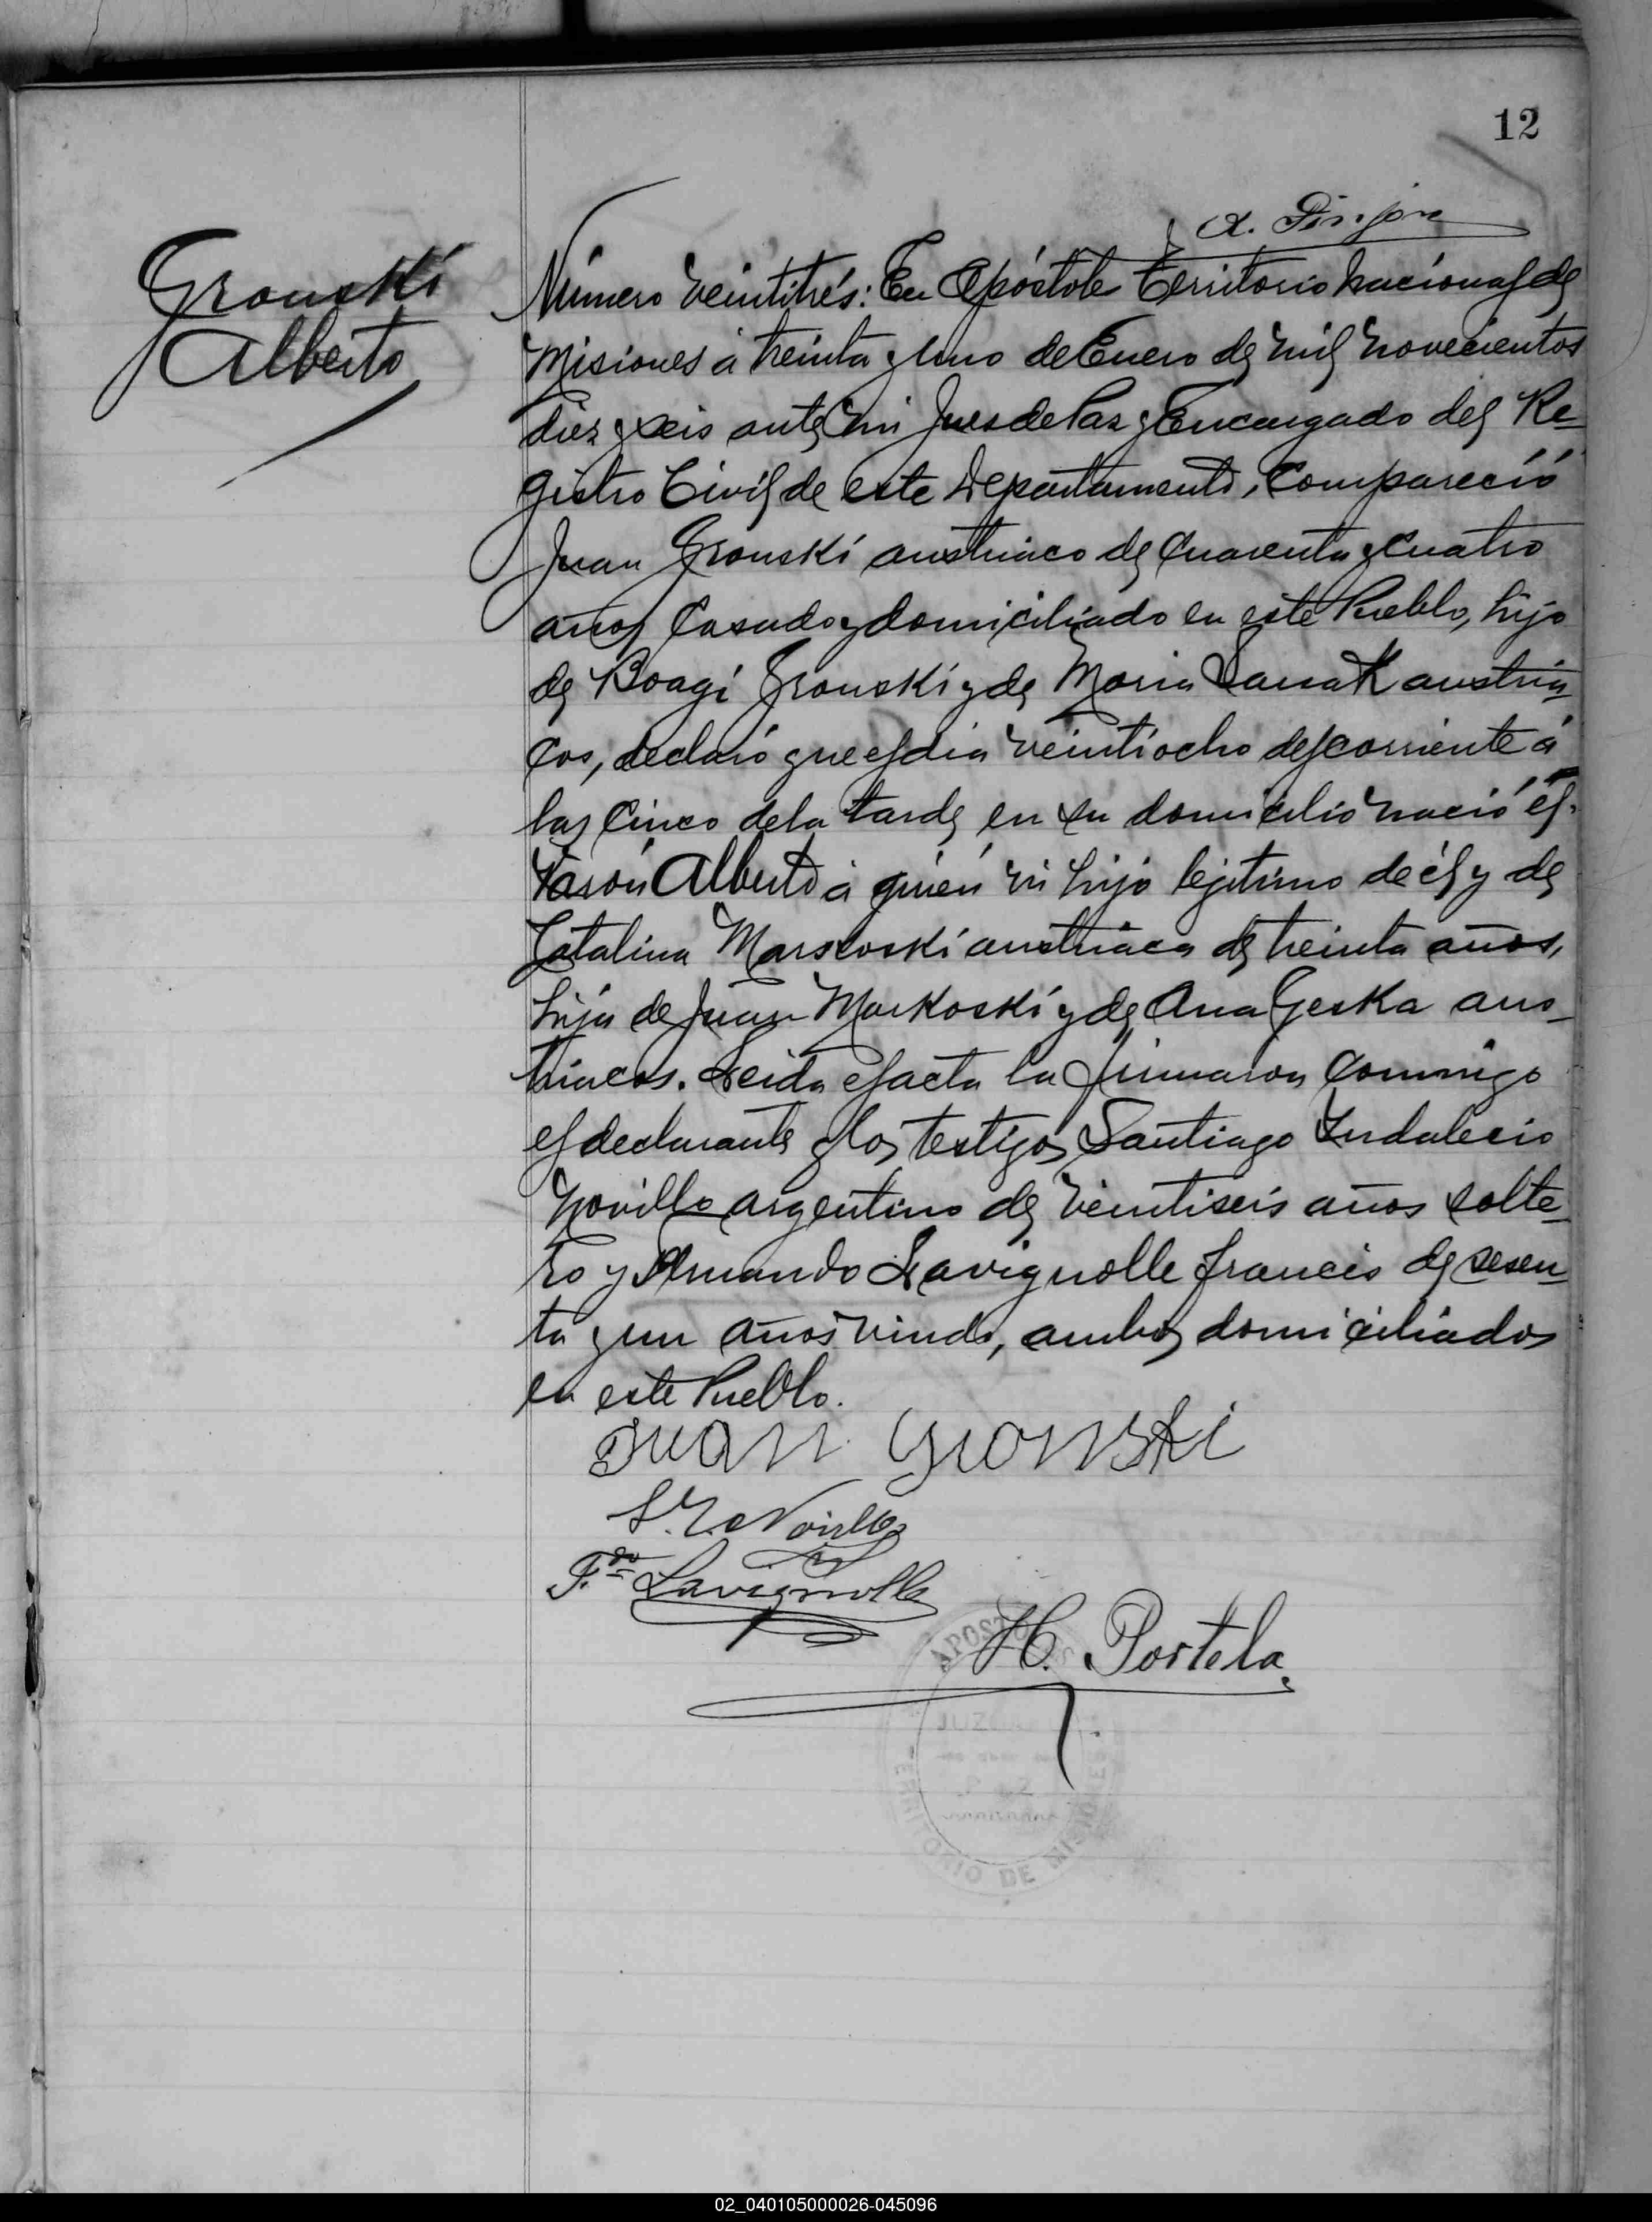 12
Gronski
Alberto
Número veintitrés: En Apóstoles Territorio Nacional de
Misiones á treinta y uno de Enero de mil novecientos
diez y seis ante mi Jues de Paz y Encargado del Re-
gistro Civil de este Departamento, Compareció
Juan Gronski austriaco de Cuarenta y Cuatro
años Casado y domiciliado en este Pueblo, hijo
de Boagi Gronski y de Maria austria-
cos, declaró que el dia veintiocho del corriente á
las Cinco de la tarde en su domicilio nació el
Varón Alberto á quién vi hijo legitimo de él y de
Catalina Marscoski austriaca de treinta años,
hija de Juan Markoski y de Ana Geska aus-
triacos. Leida el acta la firmaron Conmigo
el declarante y los testigos Santiago Indalecio
Novillo argentino de veintiseis años solte-
ro y Armando Lavignolle francés de sesen-
ta y un años viudo, ambos domiciliados
en este Pueblo.
Juan Gronski
S. I. Novillo
F.do Lavignolle
H. Portela
APOSTOLES
JUZ
TERRITORIO DE MISIONES
02_040105000026-045096